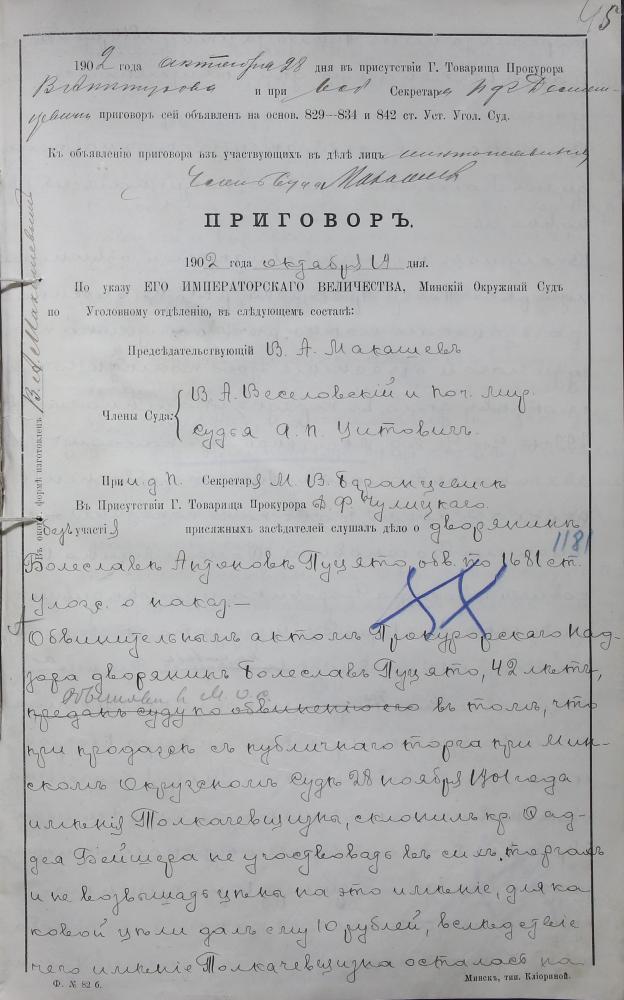 45
1902 года октября 28 дня въ присутствіи Г. Товарища Прокурора
и при Секретаря
приговоръ сей объявленъ на основ. 829—834 и 842 ст. Уст. Угол. Суд.
Къ объявленію приговора изъ участвующихъ въ дѣлѣ лицъ
Членъ Суда Макашевъ
ПРИГОВОРЪ.
1902 года октября 14 дня.
По указу ЕГО ИМПЕРАТОРСКАГО ВЕЛИЧЕСТВА, Минскій Окружный Судъ
по Уголовному отдѣленію, въ слѣдующемъ составѣ:
Предсѣдательствующій В. А. Макашевъ
Члены Суда: В. А. Веселовскій и поч. мир.
судья А. П. Цитовичъ.
При и. д. п. Секретаря М. В. Баранцевичъ
Въ Присутствіи Г. Товарища Прокурора Ф. Чулицкаго.
безъ участія присяжныхъ засѣдателей слушалъ дѣло о дворянинѣ
1181
Болеславѣ Пуцято, обв. по 1681 ст.
Улож. о наказ.—
Обвинительнымъ актомъ Прокурорскаго над-
зора дворянинъ Болеславъ Пуцято, 42 лѣтъ,
преданъ суду по обвиненію его въ томъ, что
при продажѣ съ публичнаго торга при Мин-
скомъ Окружномъ Судѣ 28 ноября 1901 года
имѣнія Толкачевщизны, склонилъ кр. Фад-
дея Бейшера не участвовать въ сихъ торгахъ
и не возвышать цѣны на это имѣніе, для ка-
ковой цѣли далъ ему 10 рублей, вслѣдствіе
чего имѣніе Толкачевщизна осталось на
Ф. № 82 б. Минскъ, тип. Кліориной.